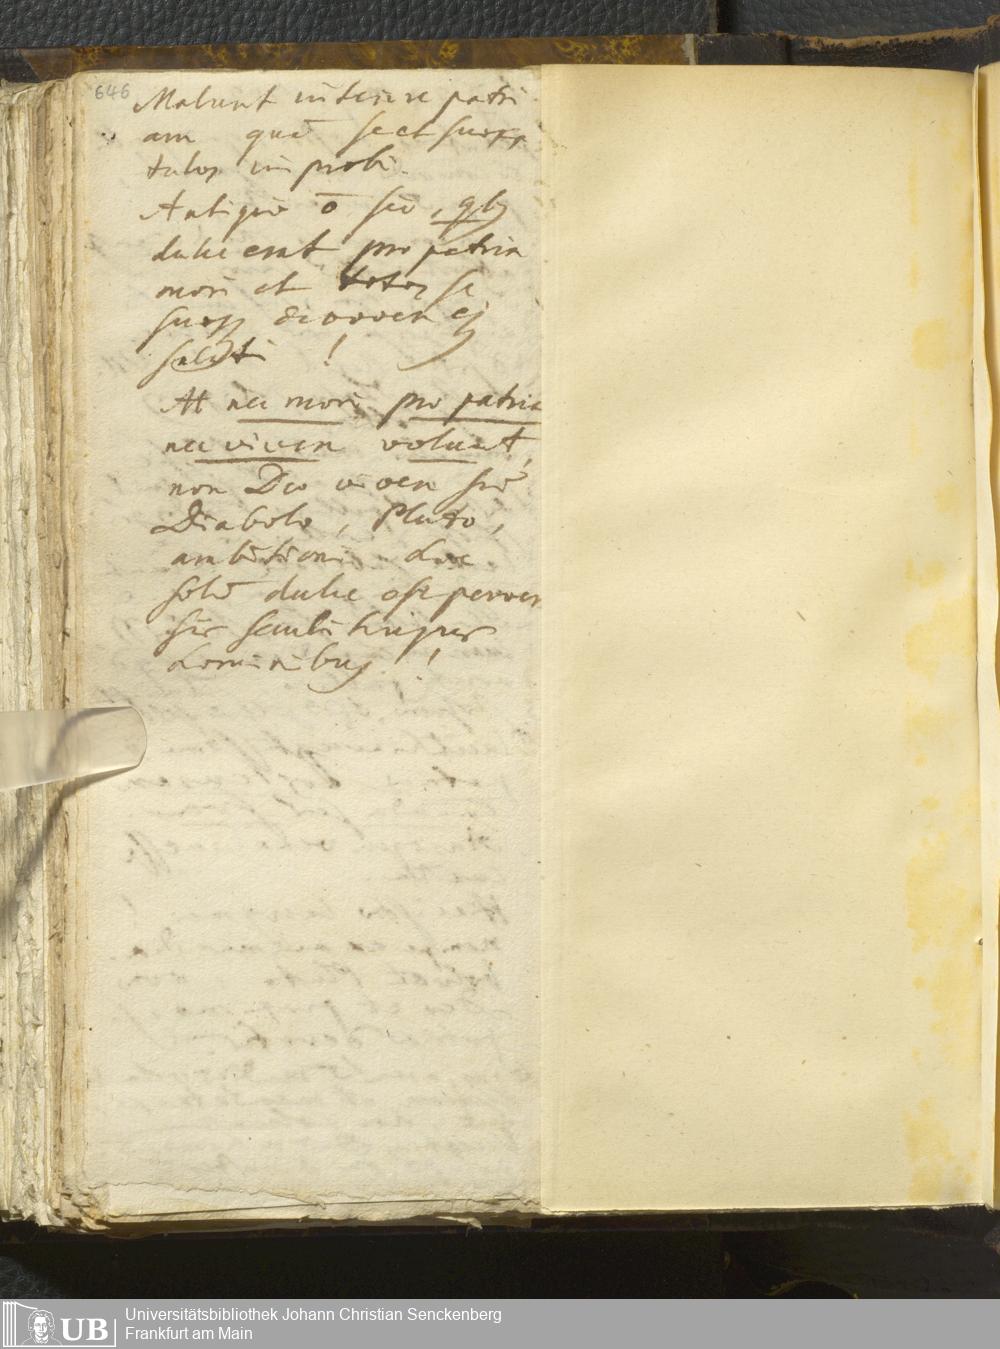 646
Malunt interire patri
am quā se et suoss
tales improbi.
Antiquis ō sic, qbȝ
dulce erat pro patria
mori et totos se
suosqȝ devovere ej
saluti !
At nec mori pro patria
nec vivere volunt,
non Deo vivere sed
Diabolo, Pluto,
ambitioni. hoc
solū dulce est perver
sis
hominibus !
UB
Universitätsbibliothek Johann Christian Senckenberg
Frankfurt am Main